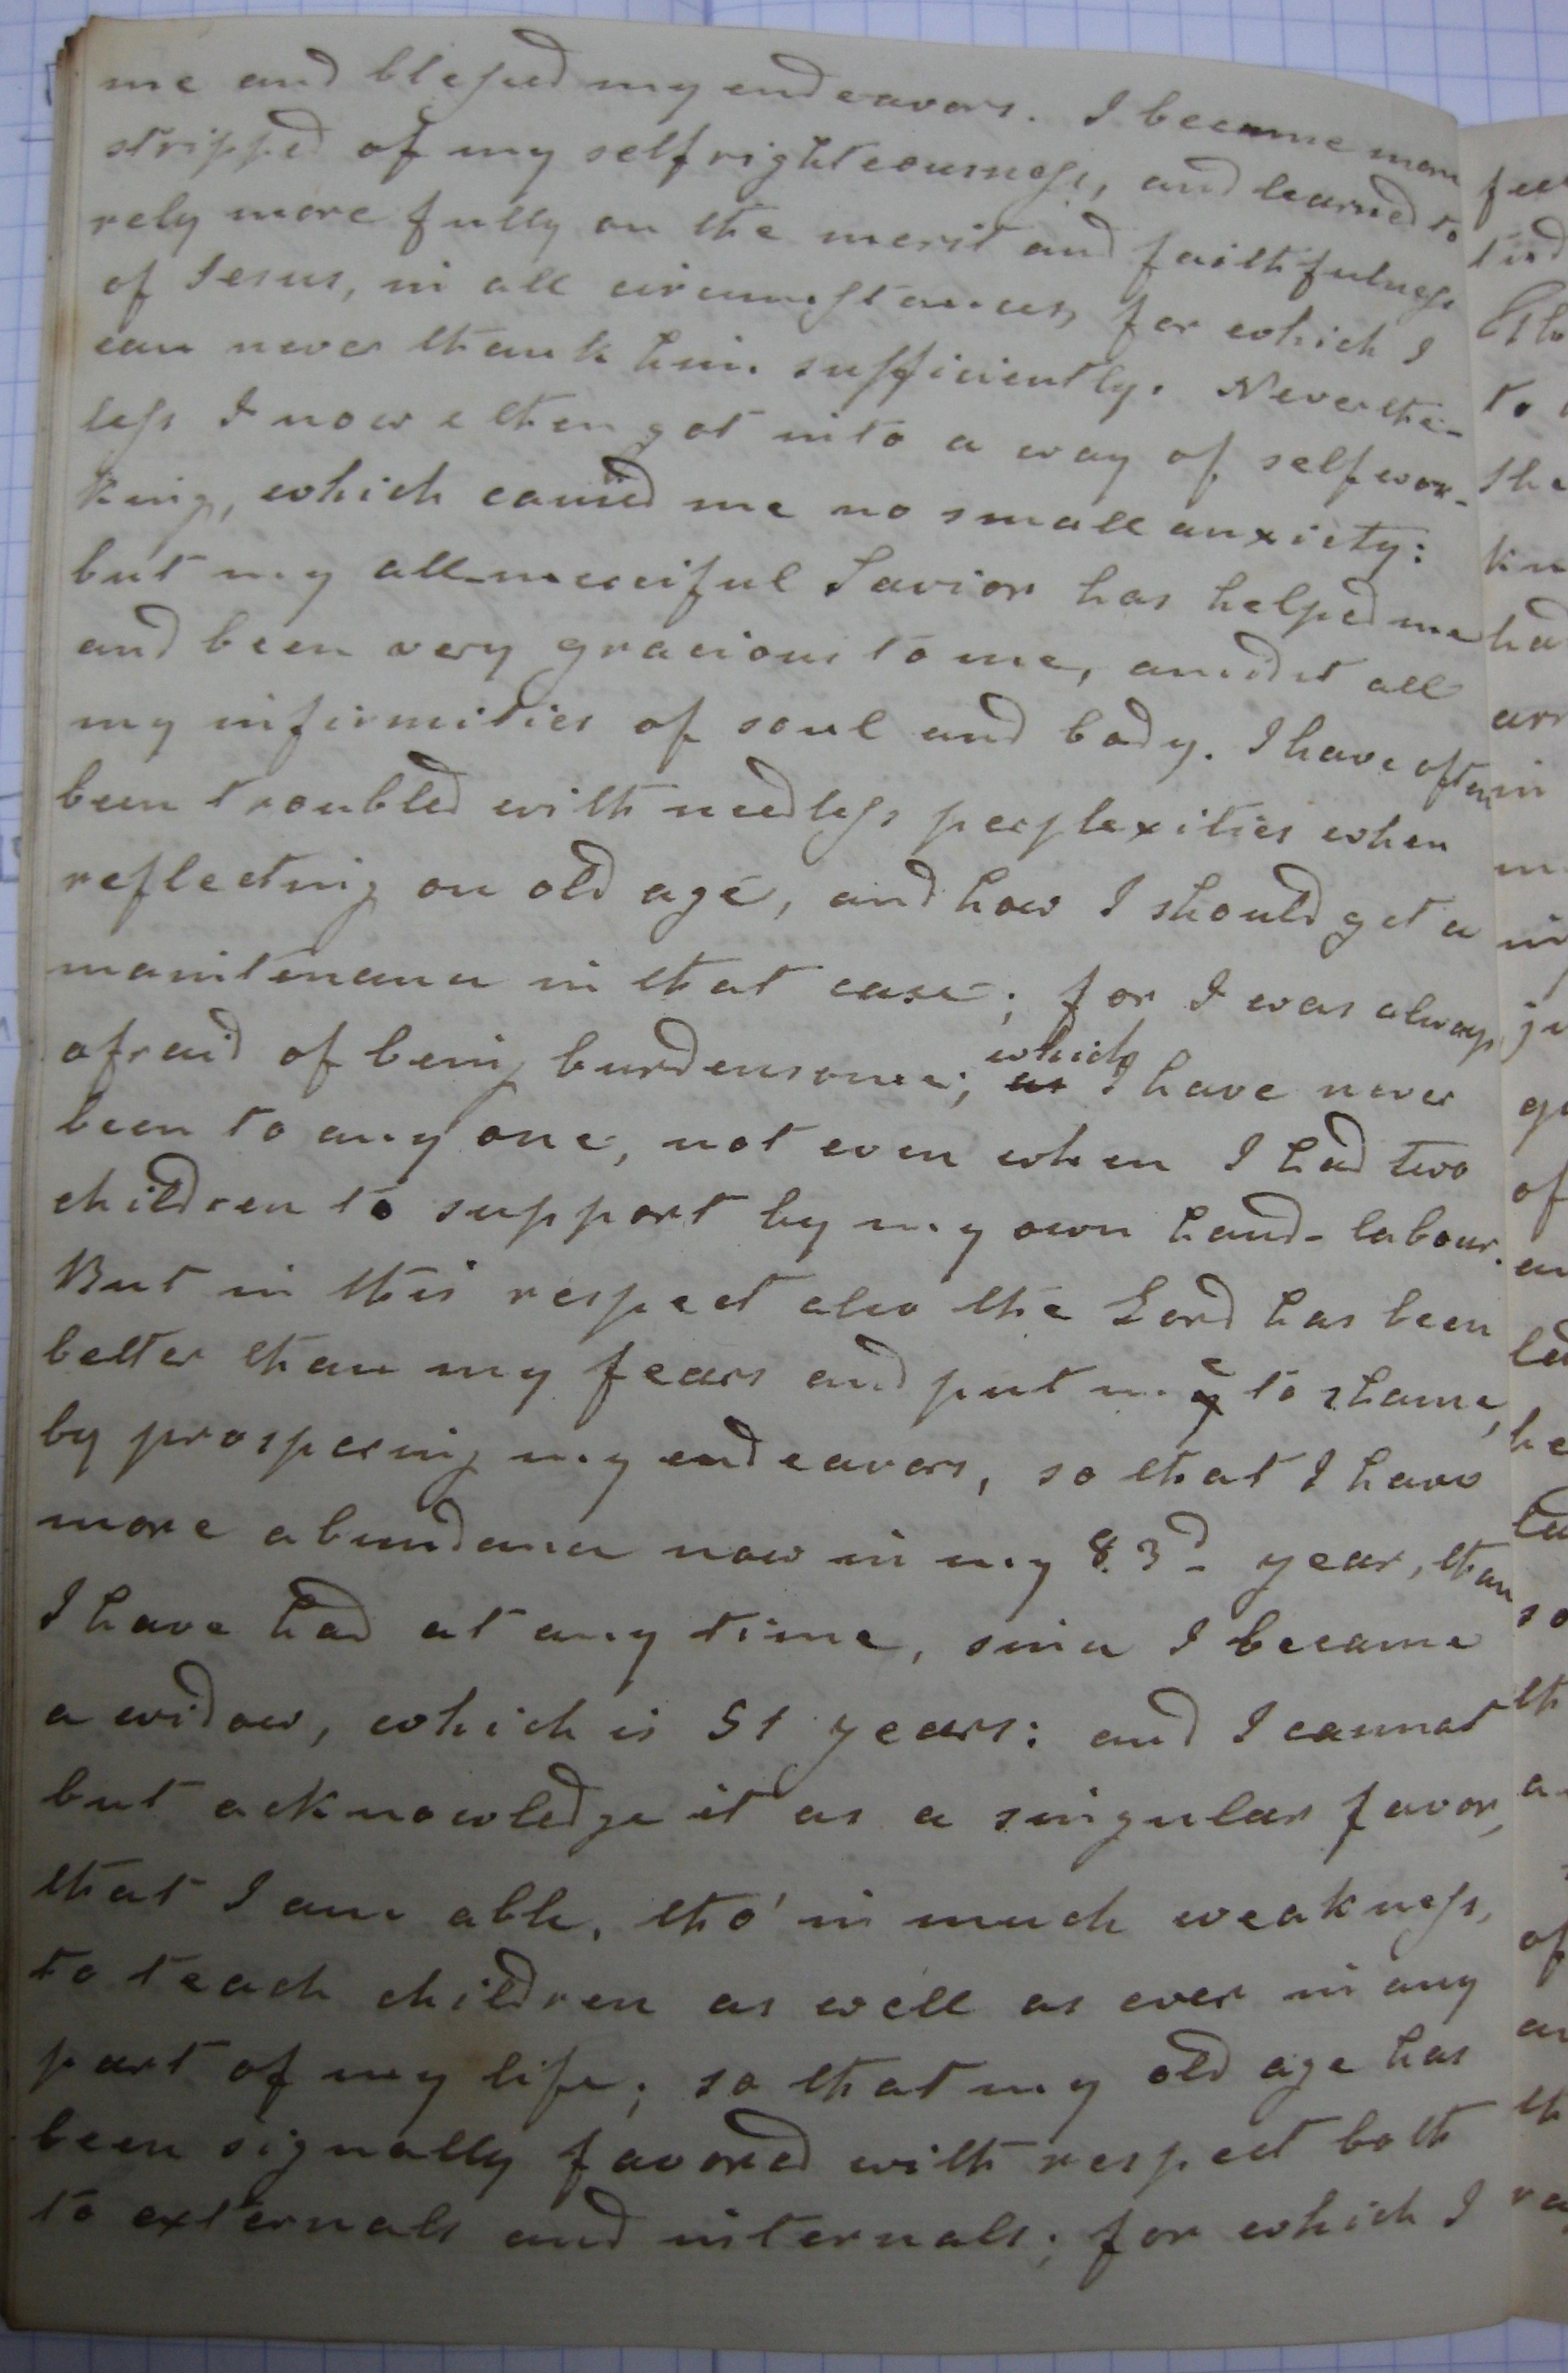 me and blessed my endeavors. I became more
stripped of my selfrighteousness, and learned to
rely more fully on the merit and faithfulness
of Jesus, in all circumstances, for which I
can never thank him sufficiently. Neverthe-
less I now & then got into a way of selfwor-
king, which caused me no small anxiety:
but my all-merciful Savior has helped me
and been very gracious to me, amidst all
my infirmities of soul and body. I have often
been troubled with needless perplexities when
reflecting on old age, and how I should get a
maintenance in that case; for I was always
afraid of being burdensome; as which I have never
been to any one, not even when I had two
children to support by my own hand-labour.
But in this respect also the Lord has been
better than my fears and put me to shame,
by prospering my endeavors, so that I have
more abundance now in my 83d year, than
I have had at any time, since I became
a widow, which is 51 years: and I cannot
but acknowledge it as a singular favor,
that I am able, tho' in much weakness,
to teach children as well as ever in any
part of my life; so that my old age has
been signally favored with respect both
to externals and internals; for which I